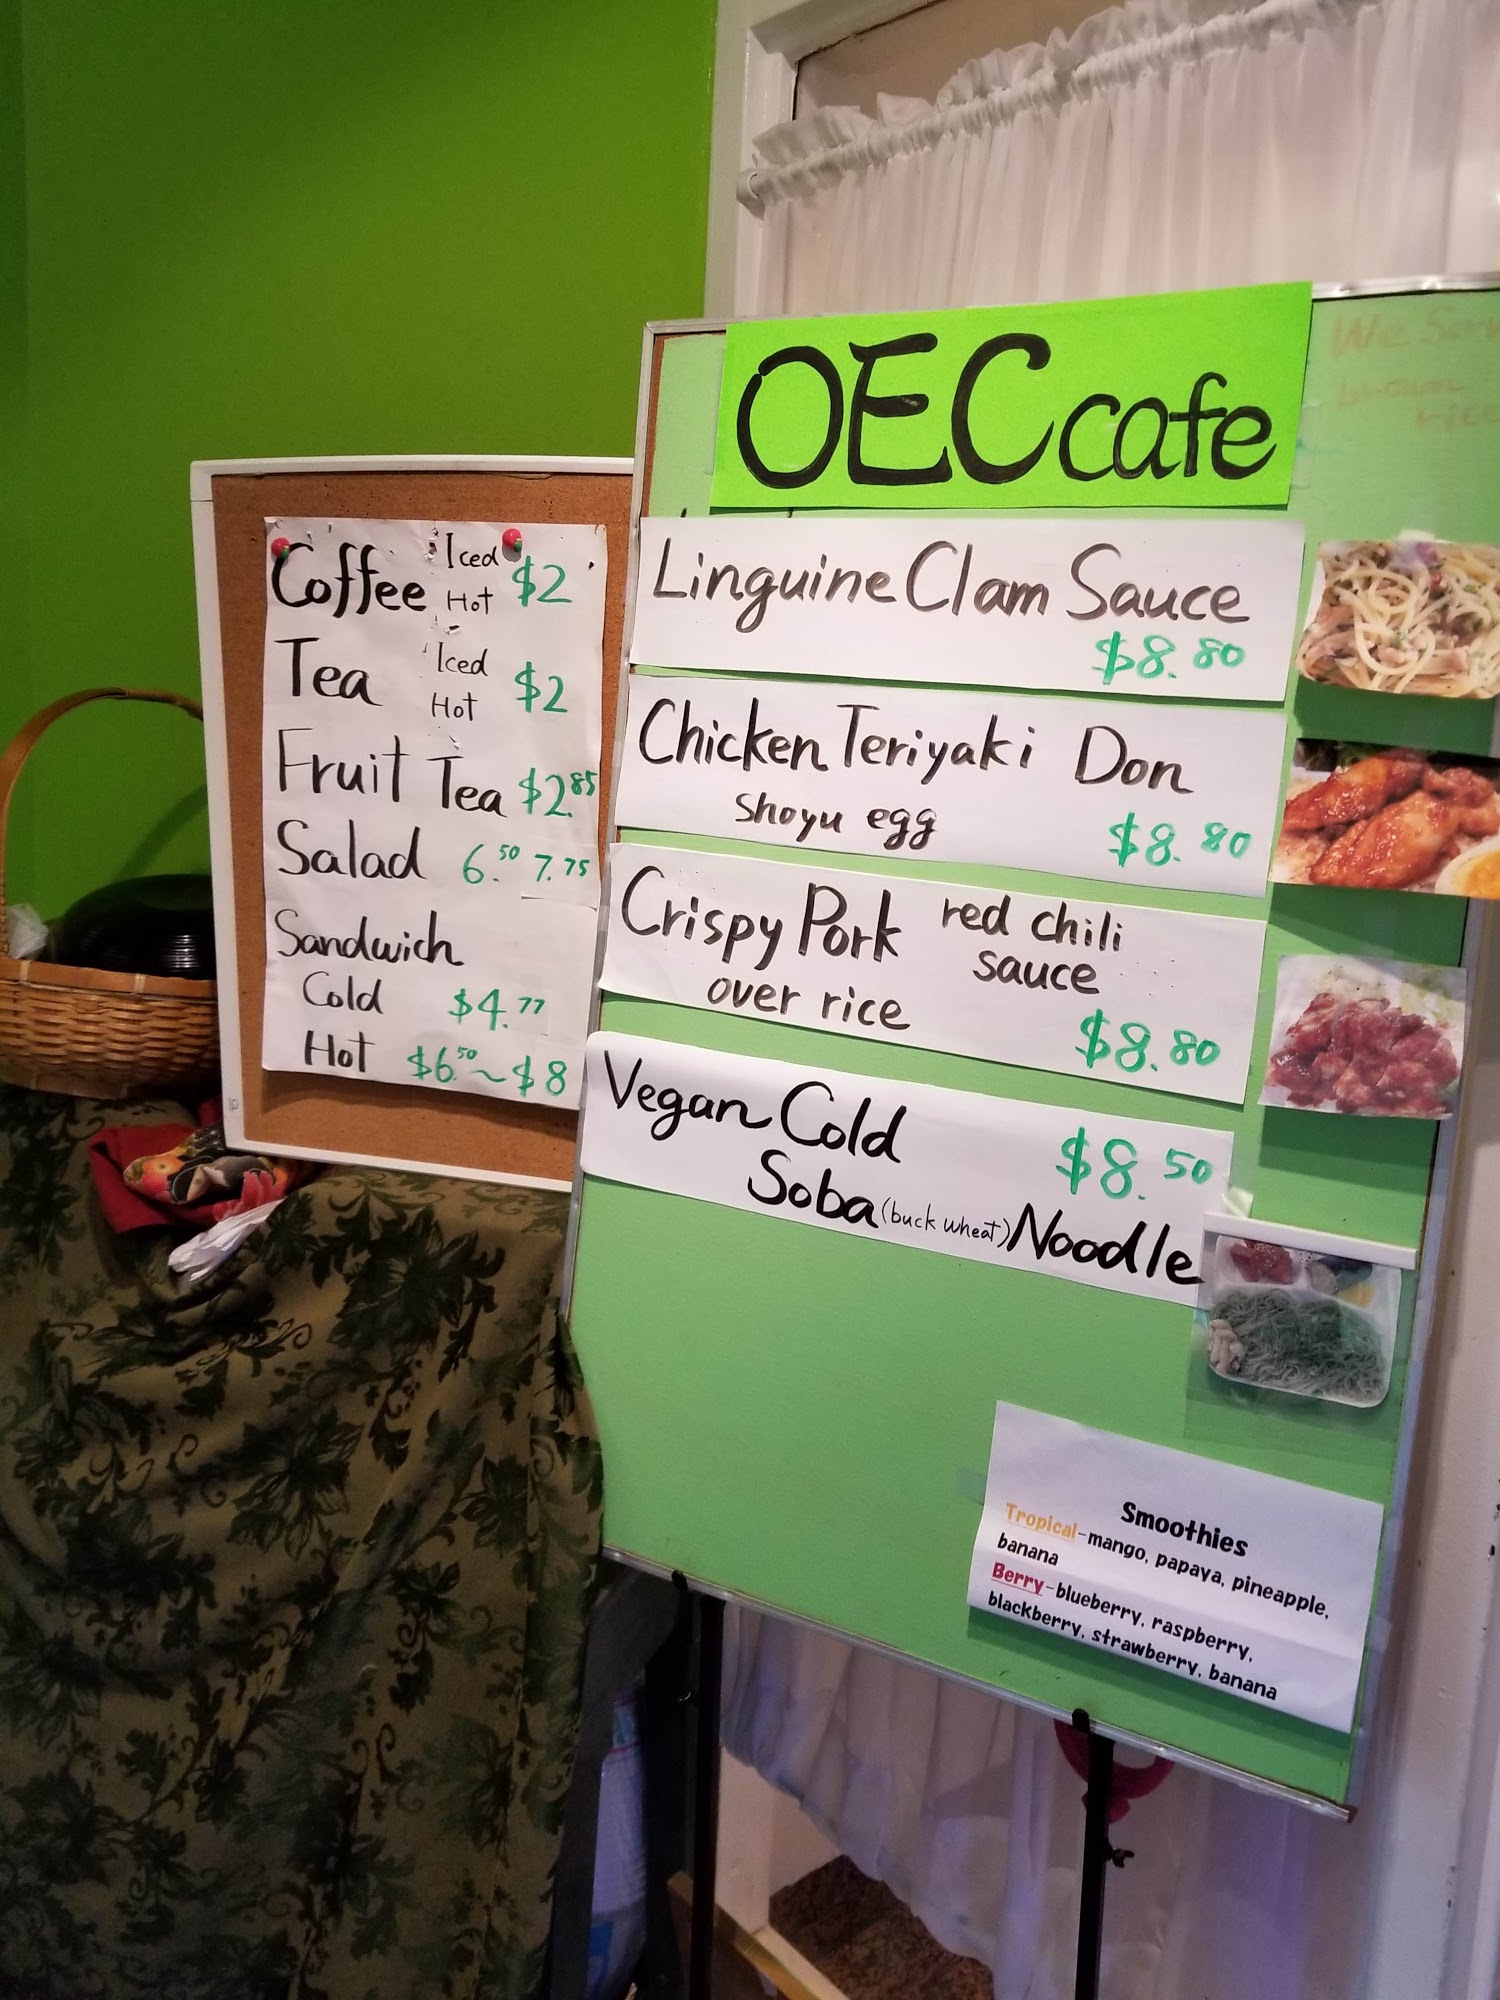 Coffee Iced Hot $2
Tea Iced Hot $2
Fruit Tea $2.85
Salad 6.50 7.75
Sandwich
Cold $4.77
Hot $6.50~$8
OEC cafe
We Serve
brown
rice
Linguine Clam Sauce
$8.80
Chicken Teriyaki Don
shoyu egg $8.80
Crispy Pork red chili
over rice sauce
$8.80
Vegan Cold $8.50
Soba (buck wheat) Noodle
Smoothies
Tropical-mango, papaya, pineapple,
banana
Berry-blueberry, raspberry,
blackberry, strawberry, banana